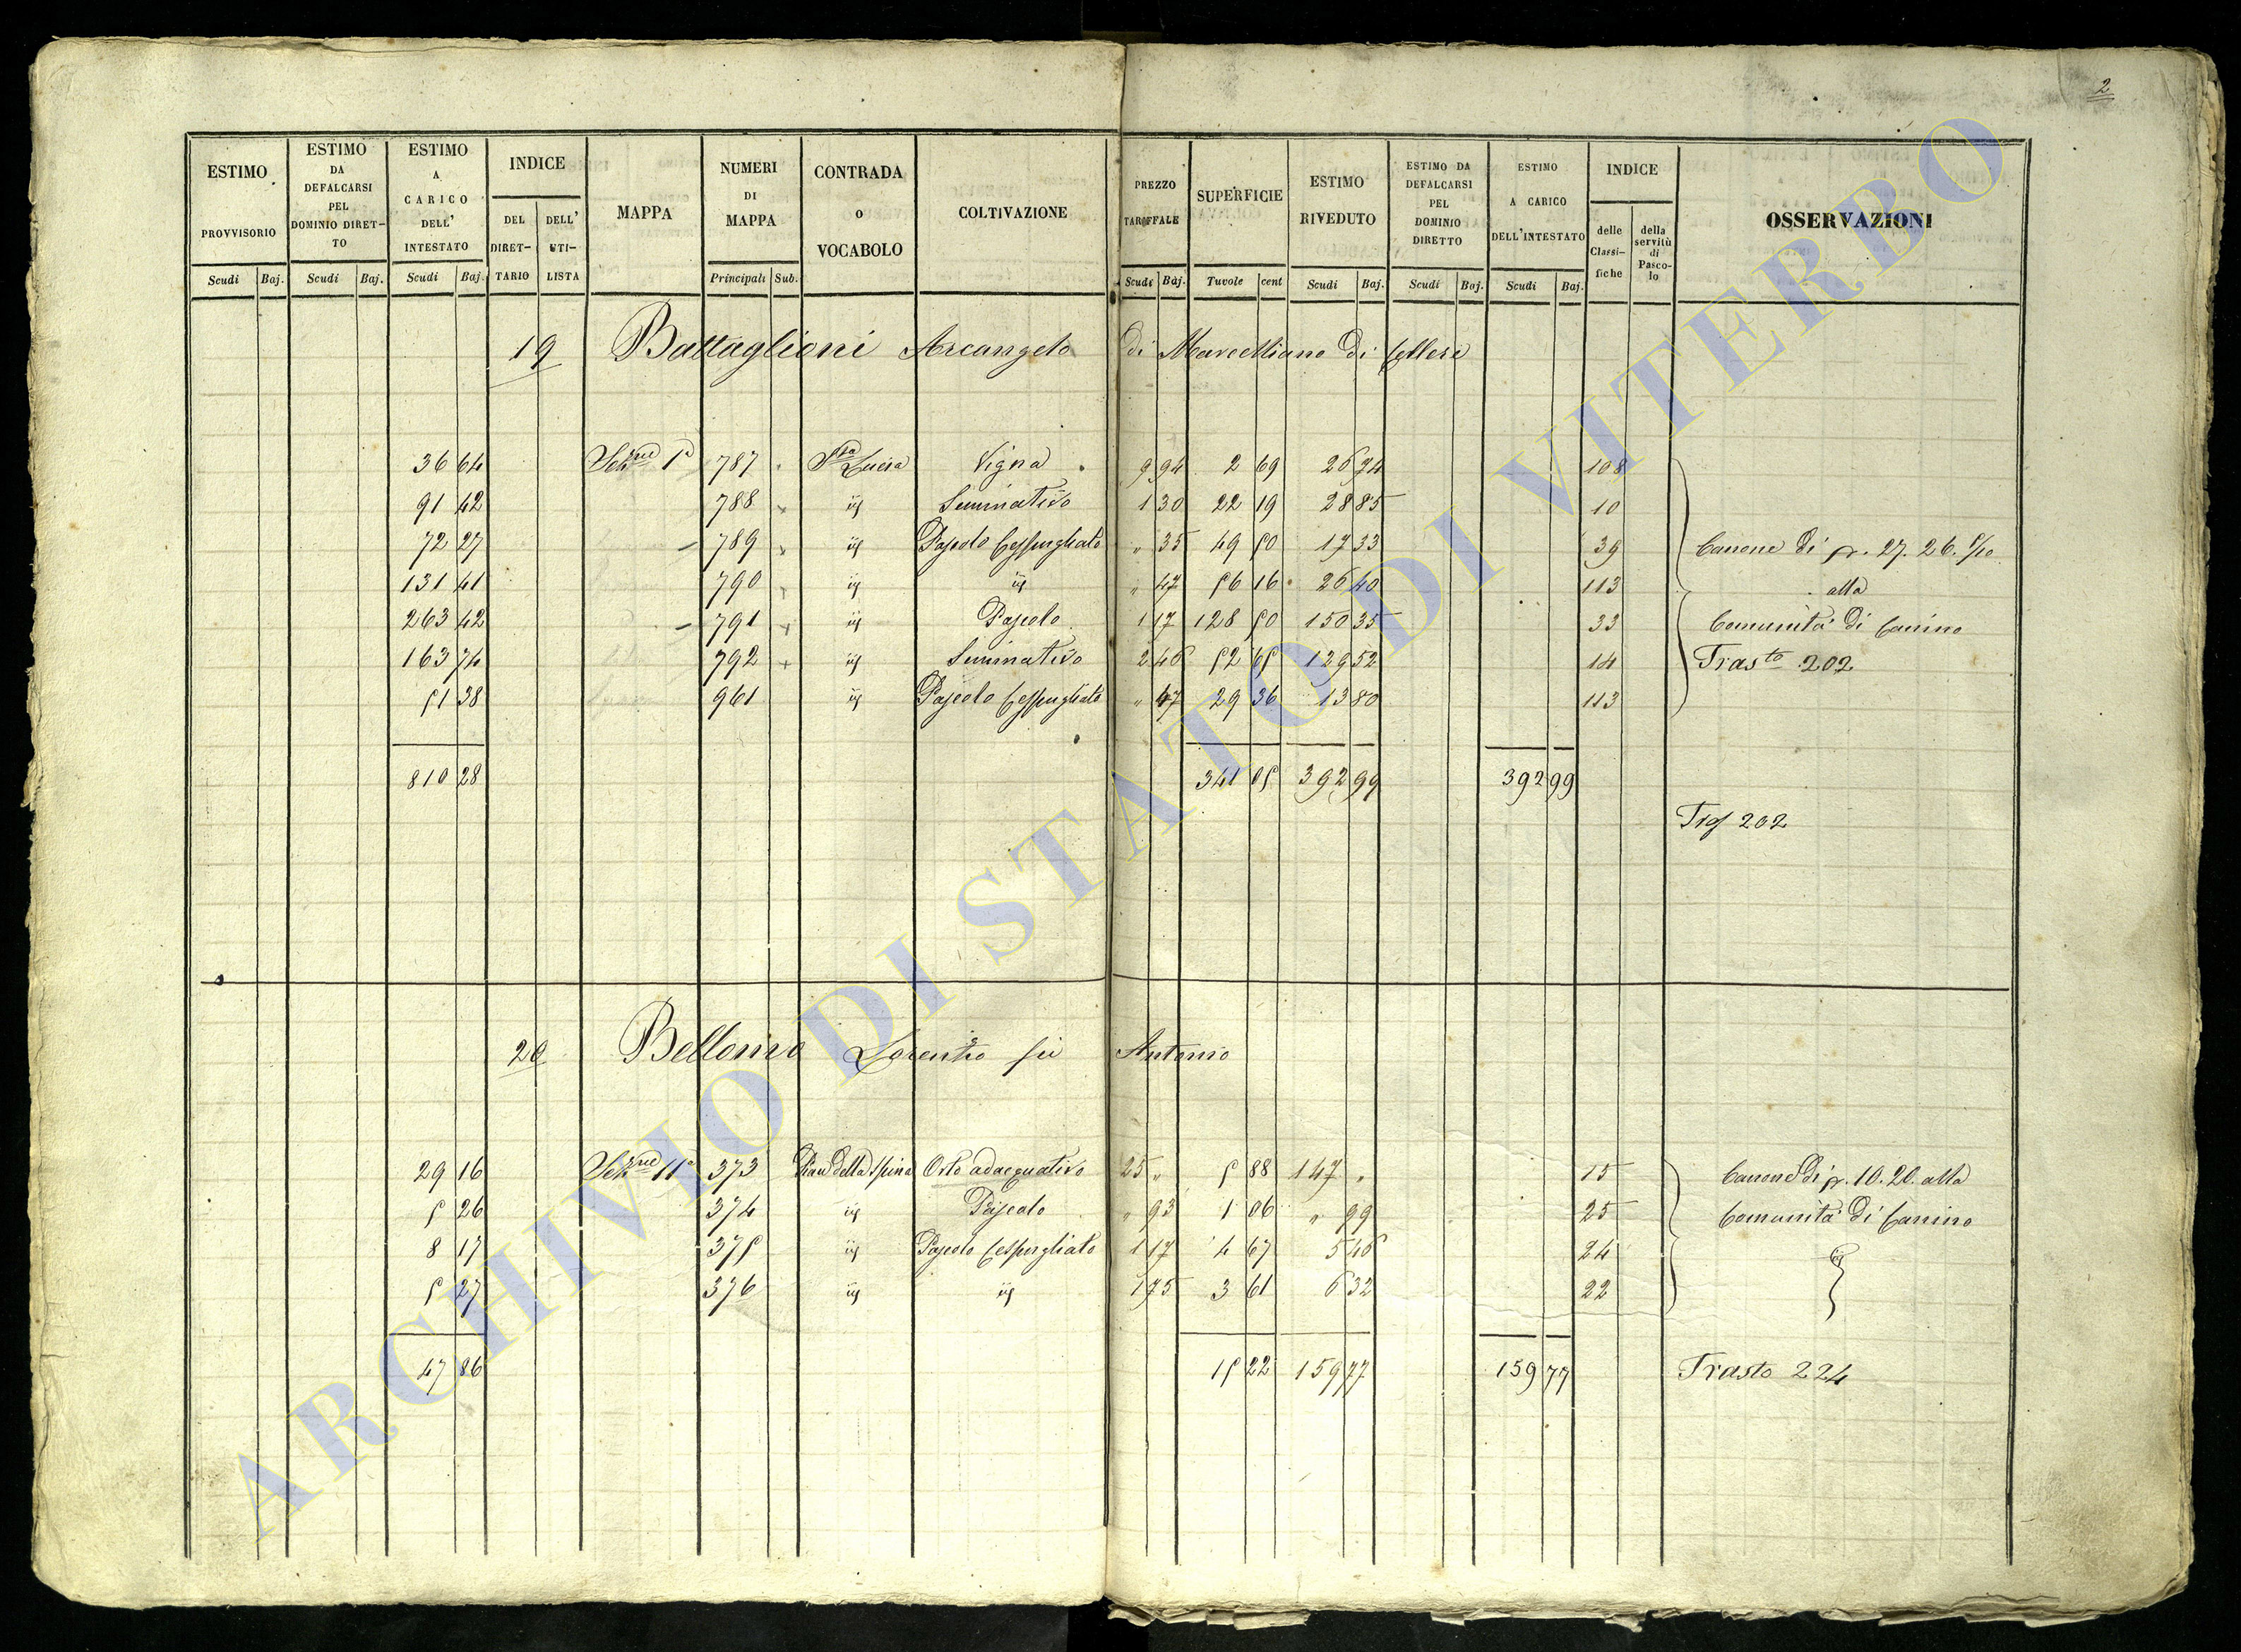 2
ESTIMO PROVVISORIO Scudi Baj.
ESTIMO DA DEFALCARSI PEL DOMINIO DIRETTO Scudi Baj.
ESTIMO A CARICO DELL' INTESTATO Scudi Baj.
INDICE DEL DIRETTARIO DELL' UTILISTA
MAPPA
NUMERI DI MAPPA Principali Sub.
CONTRADA O VOCABOLO
COLTIVAZIONE
PREZZO TARIFFALE Scudi Baj.
SUPERFICIE Tavole cent
ESTIMO RIVEDUTO Scudi Baj.
ESTIMO DA DEFALCARSI PEL DOMINIO DIRETTO Scudi Baj.
ESTIMO A CARICO DELL'INTESTATO Scudi Baj.
INDICE delle Classifiche della servitù di Pascolo
OSSERVAZIONI
19 Battaglioni Arcangelo di Marcelliano di Cellere
36 64 Sezne 1a 787 Sta Lucia Vigna 9 94 2 69 26 74 108
91 42 788 id Seminativo 1 30 22 19 28 85 10
72 27 789 id Pascolo Cespugliato " 35 49 50 17 33 39 Canone di p. 27. 26. 5/10
131 41 790 id id " 47 56 16 26 40 113 alla
263 42 791 id Pascolo 1 17 128 50 150 35 33 Comunità di Canino
163 74 792 id Seminativo 2 46 52 65 129 52 14 Trasto 202
51 38 961 id Pascolo Cespugliato " 47 29 36 13 80 113
810 28 341 05 392 99 392 99
Trs 202
20 Bellomo Lorenzo fu Antonio
29 16 Sezne 11a 373 Pian della Spina Orto adacquativo 25 " 5 88 147 " 15 Canone di p. 10. 20. alla
5 26 374 id Pascolo " 93 1 06 " 99 25 Comunità di Canino
8 17 375 id Pascolo Cespugliato 1 17 4 67 5 46 24
5 27 376 id id 1 75 3 61 6 32 22
47 86 15 22 159 77 159 77 Trasto 224
ARCHIVIO DI STATO DI VITERBO